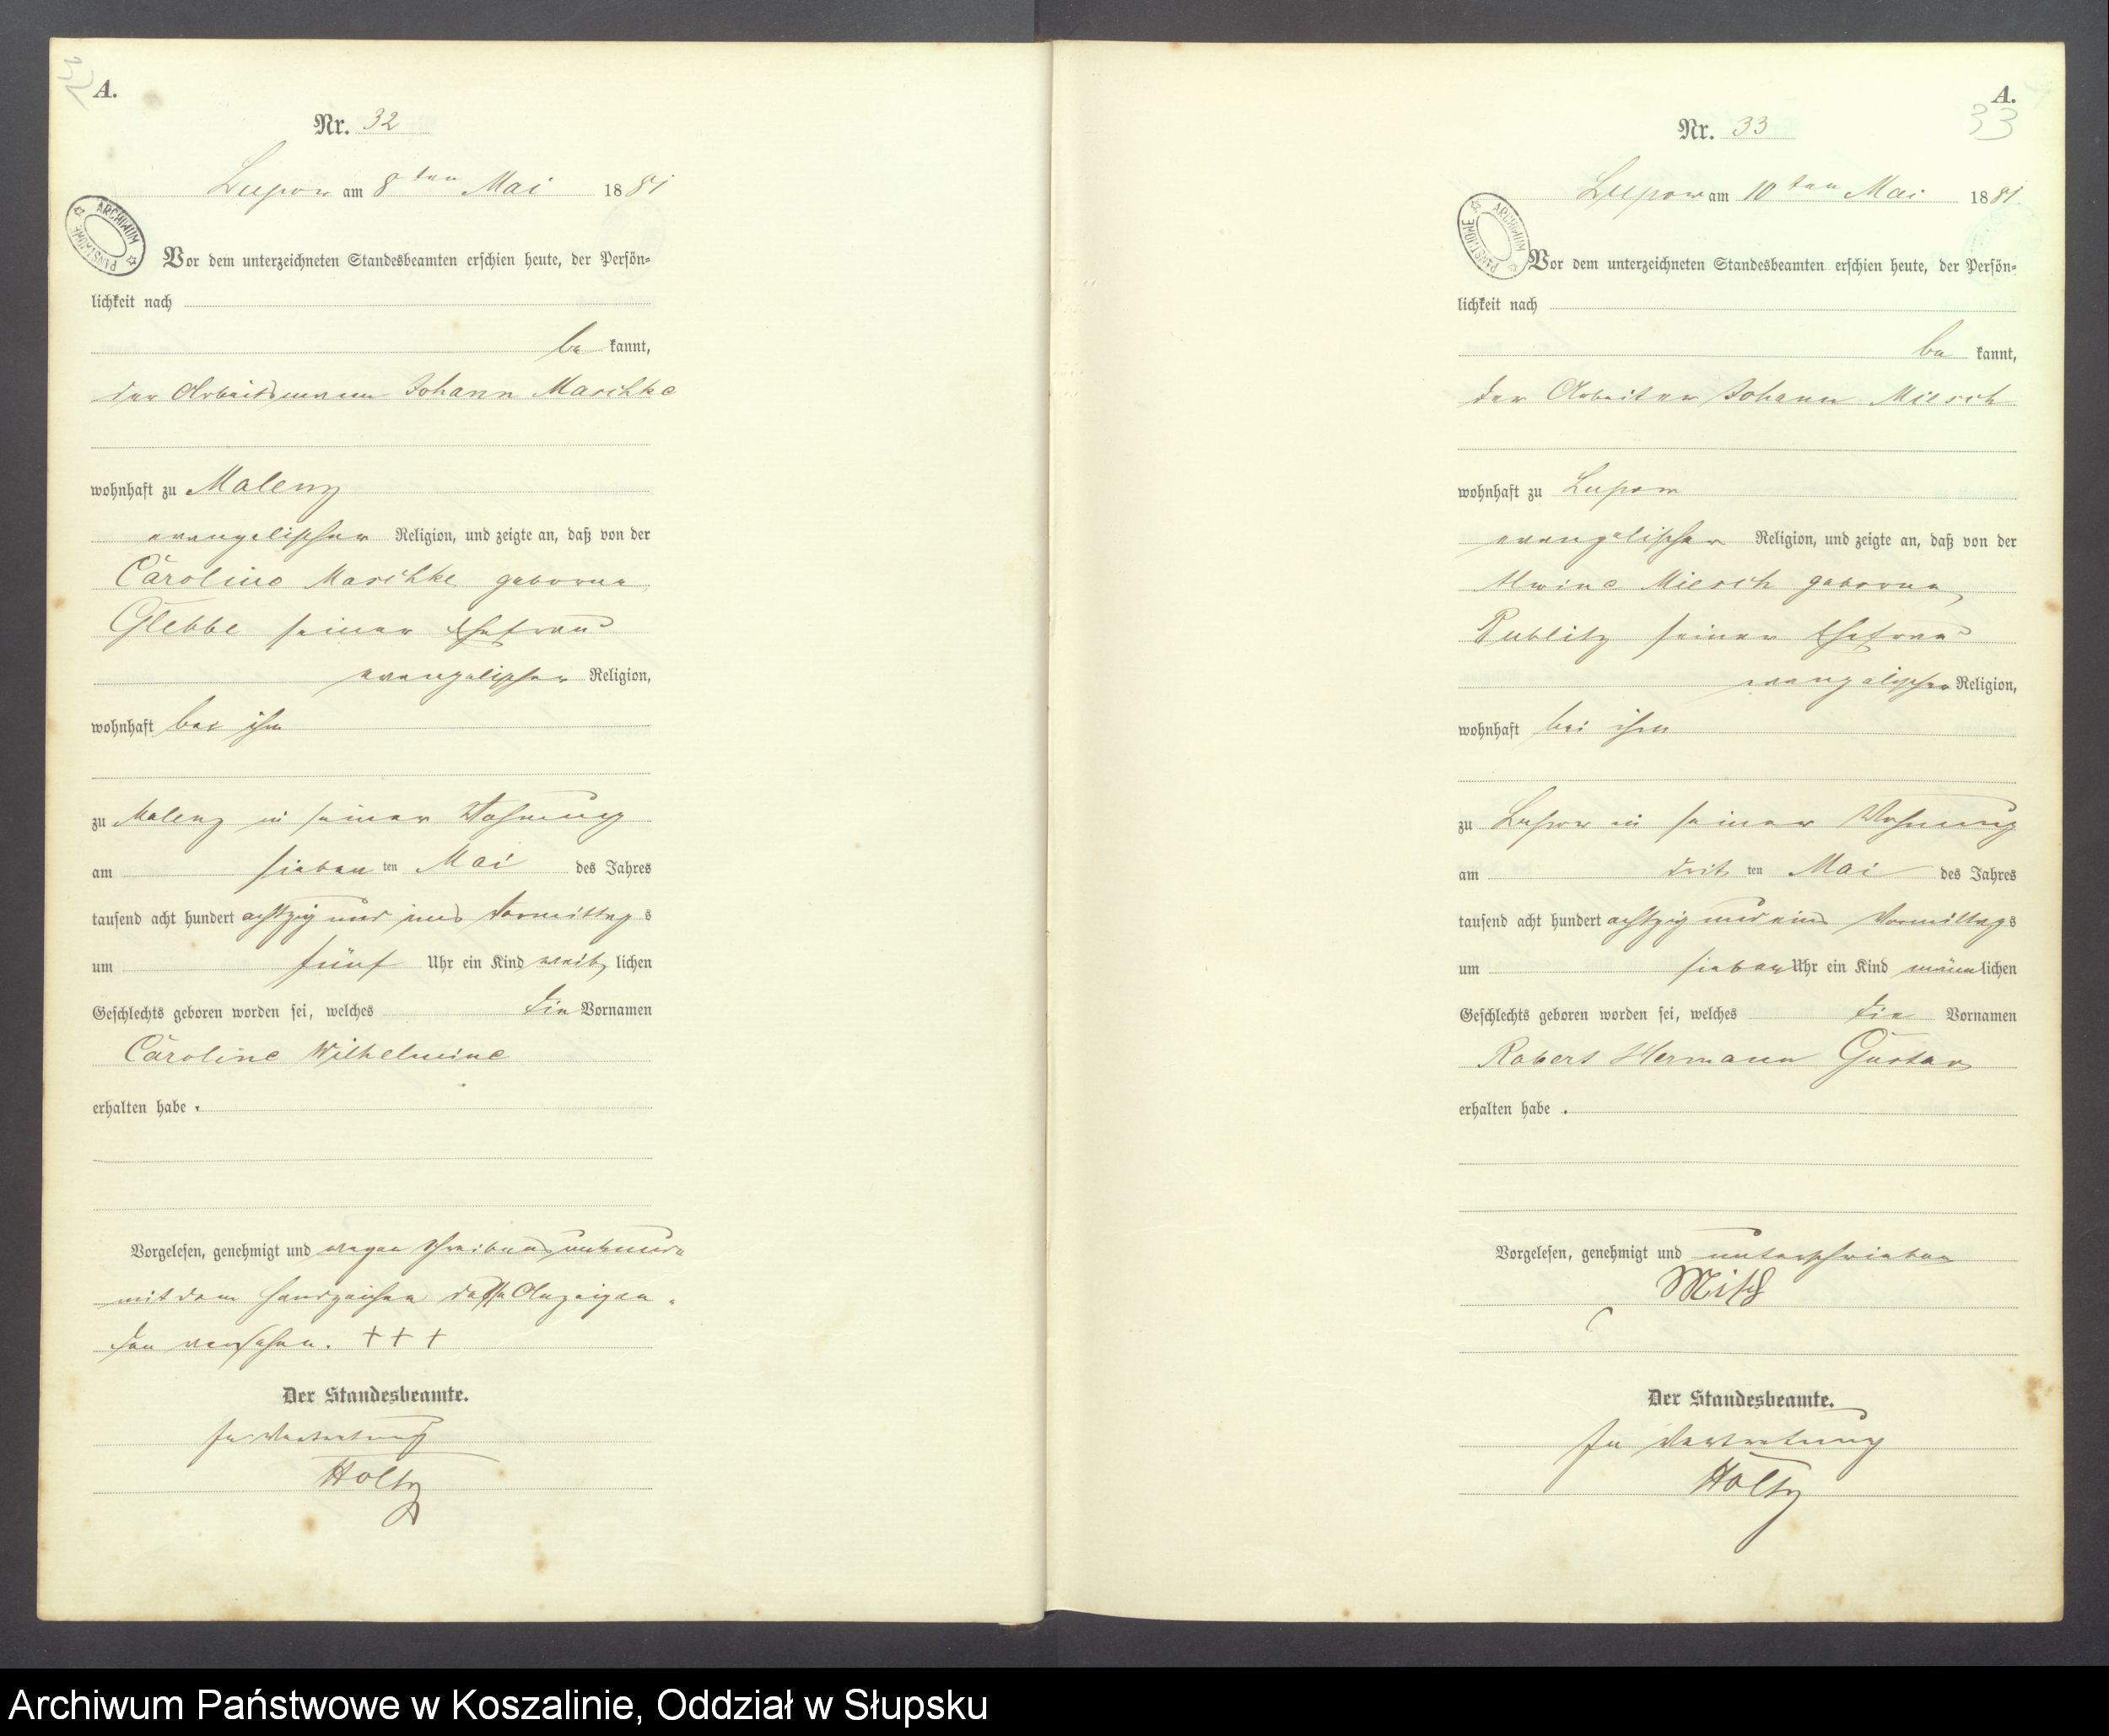 32
A.
Nr. 32
Lupow am 8ten Mai 1881
ARCHIWUM PAŃSTWOWE
Vor dem unterzeichneten Standesbeamten erschien heute, der Persön=
lichkeit nach
be kannt,
der Arbeitsmann Johann Maschke
wohnhaft zu Malenz
evangelischer Religion, und zeigte an, daß von der
Caroline Maschke geborne
Glebbe seiner Ehefrau
evangelischer Religion,
wohnhaft bei ihm
zu Malenz in seiner Wohnung
am sieben ten Mai des Jahres
tausend acht hundert achtzig und eins Vormittag s
um fünf Uhr ein Kind weib lichen
Geschlechts geboren worden sei, welches die Vornamen
Caroline Wilhelmine
erhalten habe .
Vorgelesen, genehmigt und wegen Schreibens unkunde
mit dem Handzeichen des Anzeigen-
den versehen. + + +
Der Standesbeamte.
In Vertretung
Holtz
A.
33
Nr. 33
Lupow am 10ten Mai 1881
ARCHIWUM PAŃSTWOWE
Vor dem unterzeichneten Standesbeamten erschien heute, der Persön=
lichkeit nach
be kannt,
der Arbeiter Johann Miesch
wohnhaft zu Lupow
evangelischer Religion, und zeigte an, daß von der
Alwine Miesch geborne
Publitz seiner Ehefrau
evangelischer Religion,
wohnhaft bei ihm
zu Lupow in seiner Wohnung
am drit ten Mai des Jahres
tausend acht hundert achtzig und eins Vormittags
um sieben Uhr ein Kind männlichen
Geschlechts geboren worden sei, welches die Vornamen
Robert Hermann Gustav
erhalten habe .
Vorgelesen, genehmigt und unterschrieben
Der Standesbeamte.
In Vertretung
Holtz
Archiwum Państwowe w Koszalinie, Oddział w Słupsku